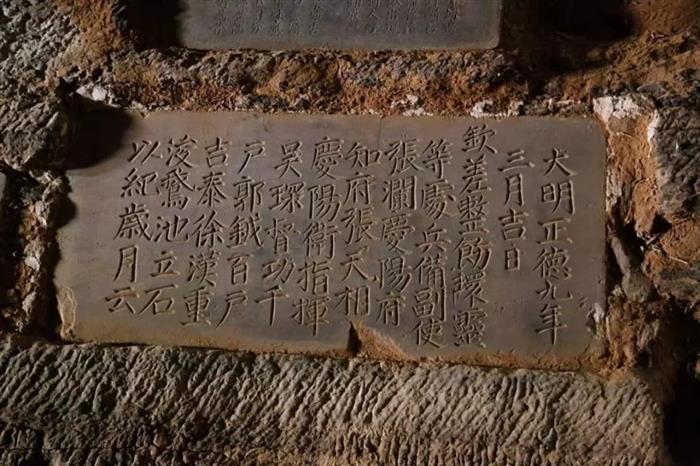 大明正德九年
三月吉日
欽差整飭環靈
等處兵備副使
張瀾慶陽府
知府張天相
慶陽衛指揮
吳琛督功千
戶郭鉞百戶
吉泰徐漢重
浚鵝池立石
以紀歲月云